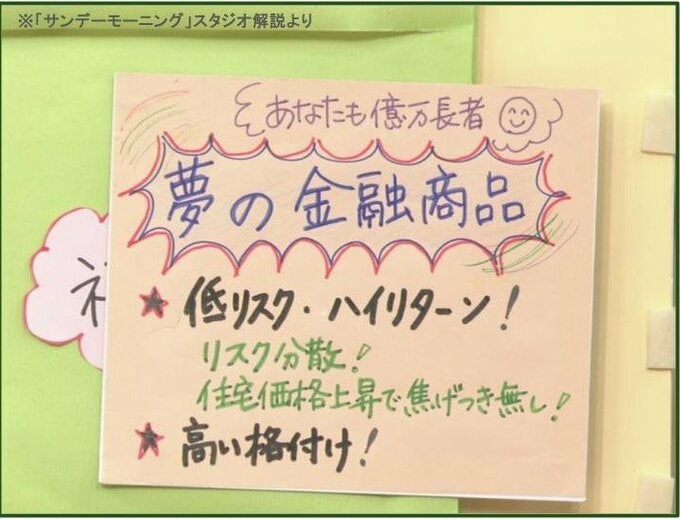 ※「サンデーモーニング」スタジオ解説より
あなたも億万長者
夢の金融商品
★ 低リスク・ハイリターン!
リスク分散!
住宅価格上昇で焦げつき無し!
★ 高い格付け!